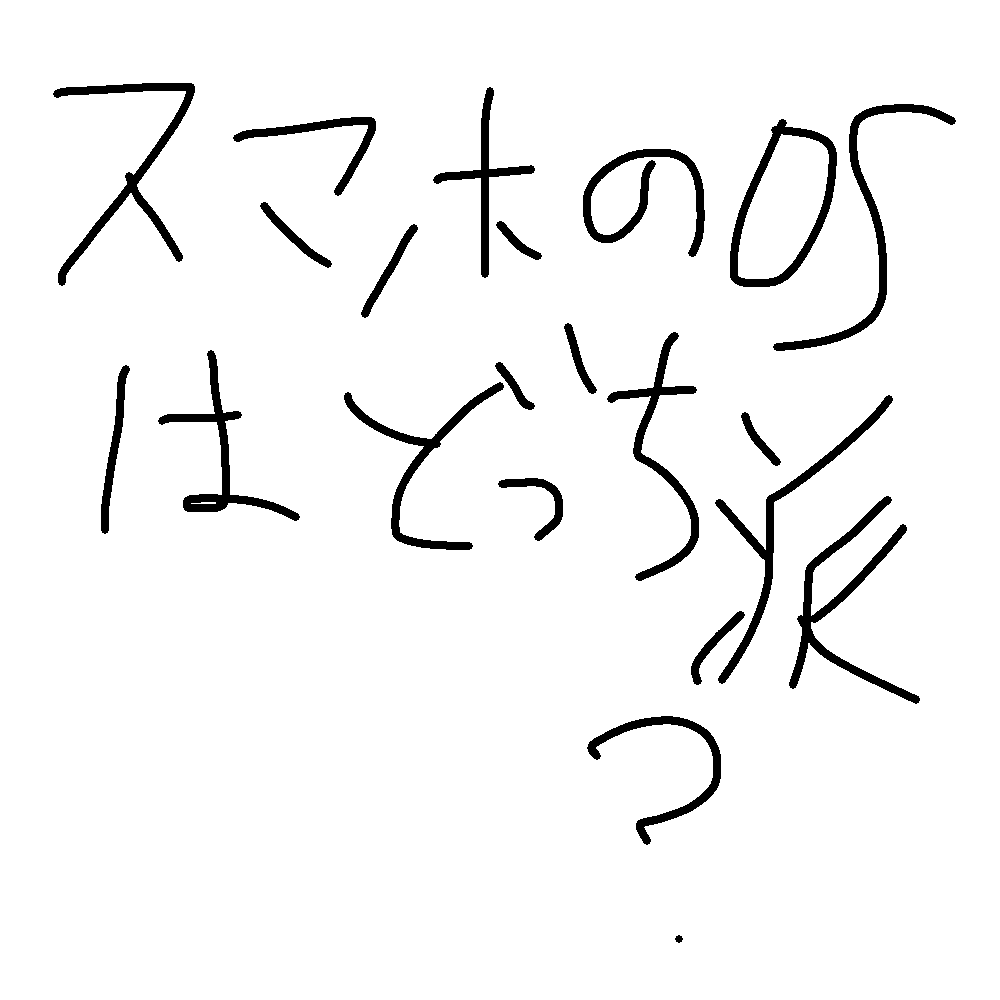 スマホのOS
はどっち派
?